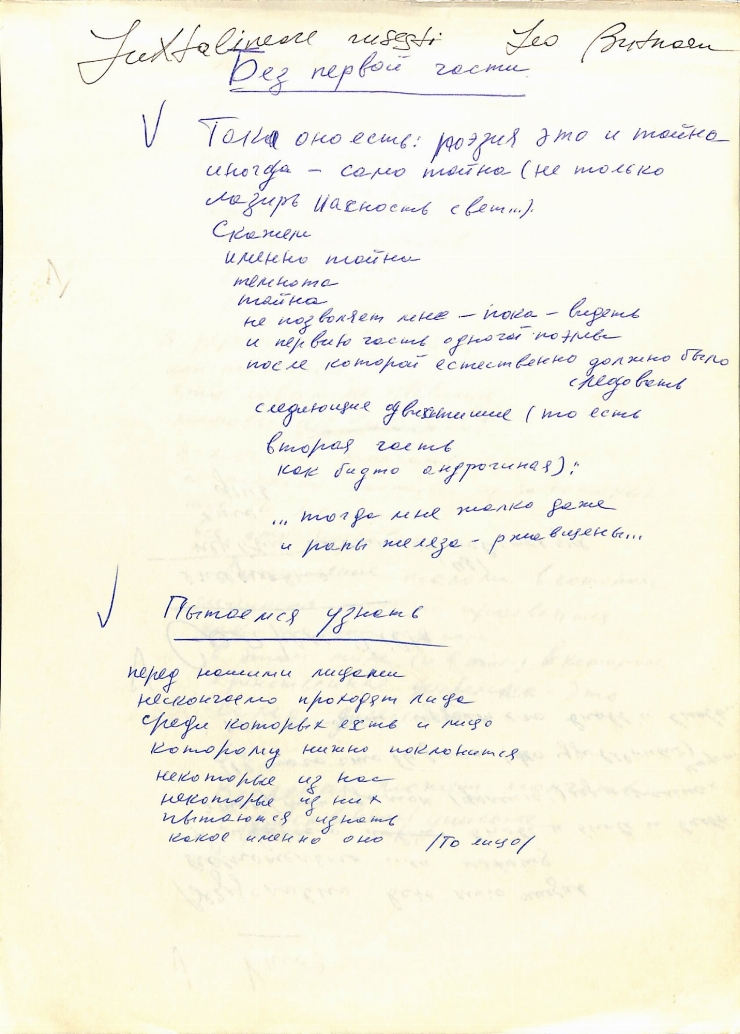 Juxtaliniare rusești Leo Butnaru
Без первой части
Така оно есть: поэзия это и тайна
иногда – само тайна (не только
лазирь ... свет...).
Скажем
именно тайна
темнота
тайна
не позволяет мне – пока – видеть
и первую часть одной поэмы
после которой естественно должно было
следовать
следующие двустишие (то есть
вторая часть
как будто андрогиная):
... тогда мне жалко даже
и раны железа – ржавщены...
Пытаемся узнать
перед нашими лицами
нескончаемо проходят лица
среди которых есть и лицо
которому нужно поклонится
некоторые из нас
некоторые из них
пытаются узнать
какое именно оно /то лицо/